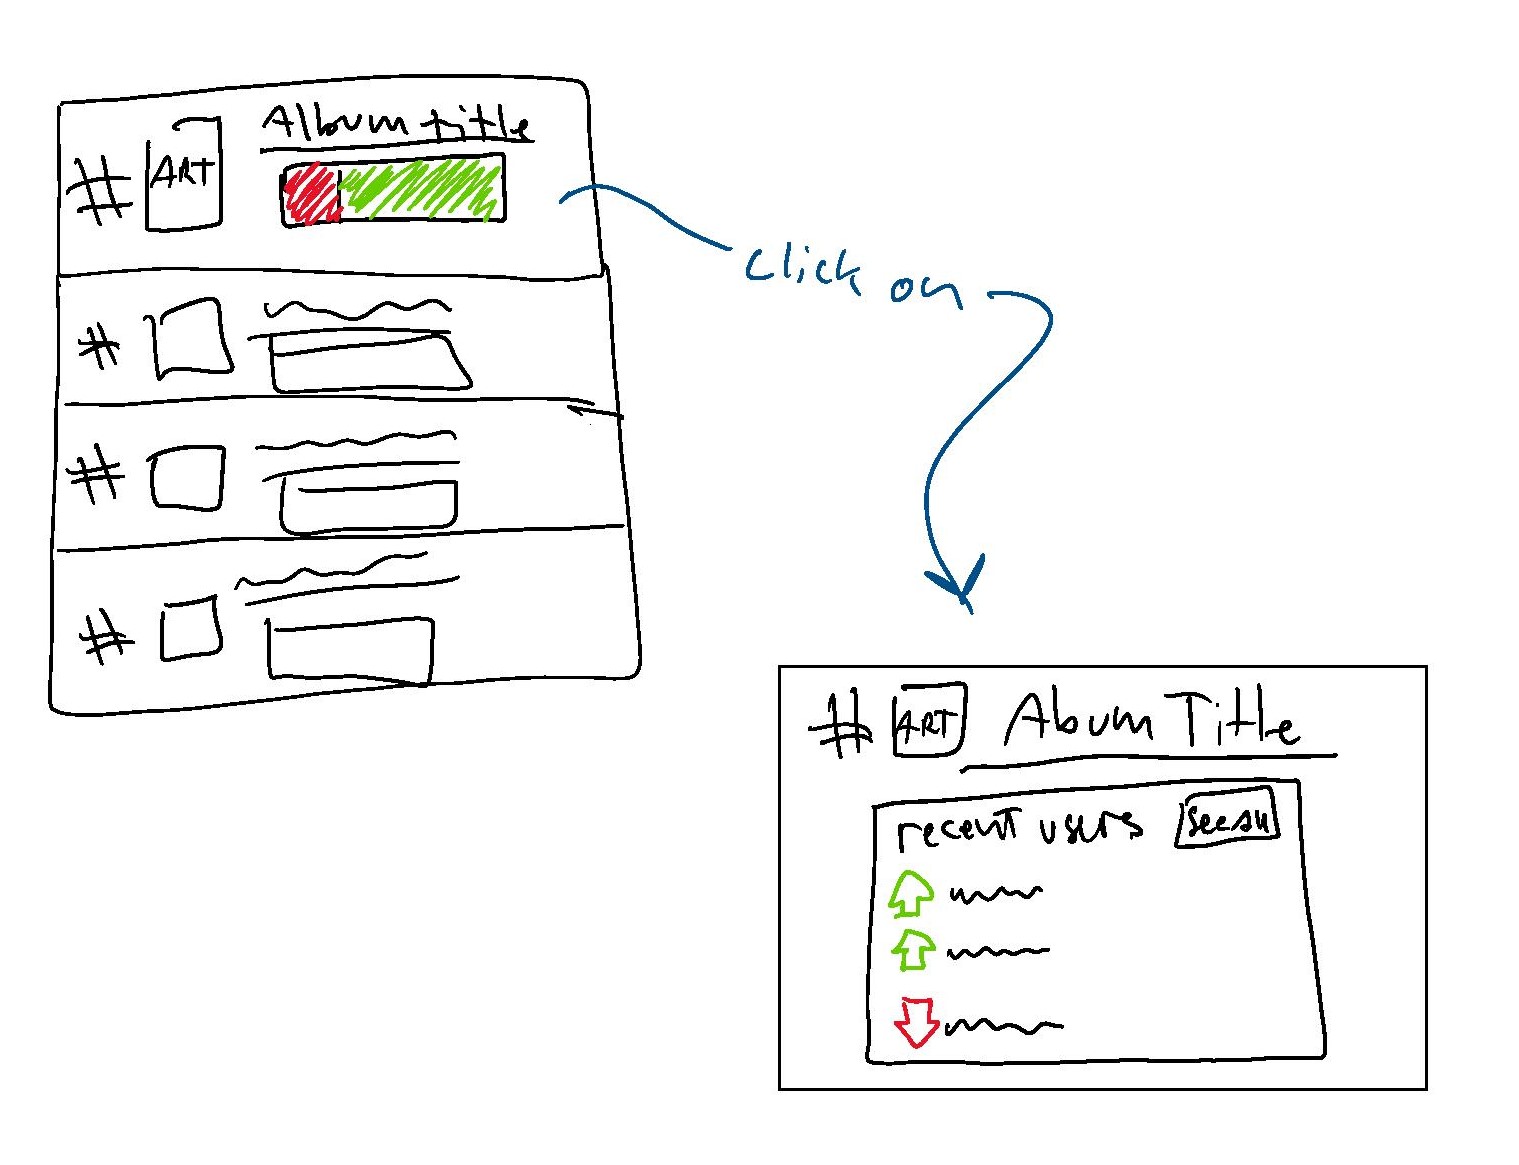 Album title
# ART
click on
#
#
#
# ART Abum Title
recent users See all